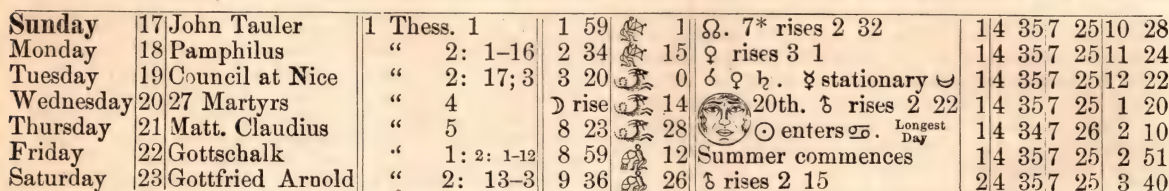 Sunday 17 John Tauler 1 Thess. 1 1 59 1 ☊. 7* rises 2 32 1 4 35 7 25 10 28
Monday 18 Pamphilus “ 2: 1-16 2 34 15 ♀ rises 3 1 1 4 35 7 25 11 24
Tuesday 19 Council at Nice “ 2: 17; 3 3 20 0 ☌ ♀ ♄. ☿ stationary 1 4 35 7 25 12 22
Wednesday 20 27 Martyrs “ 4 ☽ rise 14 20th. ♄ rises 2 22 1 4 35 7 25 1 20
Thursday 21 Matt. Claudius “ 5 8 23 28 ☉ enters ♋. Longest Day 1 4 34 7 26 2 10
Friday 22 Gottschalk “ 1: 2: 1-12 8 59 12 Summer commences 1 4 35 7 25 2 51
Saturday 23 Gottfried Arnold “ 2: 13-3 9 36 26 ♄ rises 2 15 2 4 35 7 25 3 40